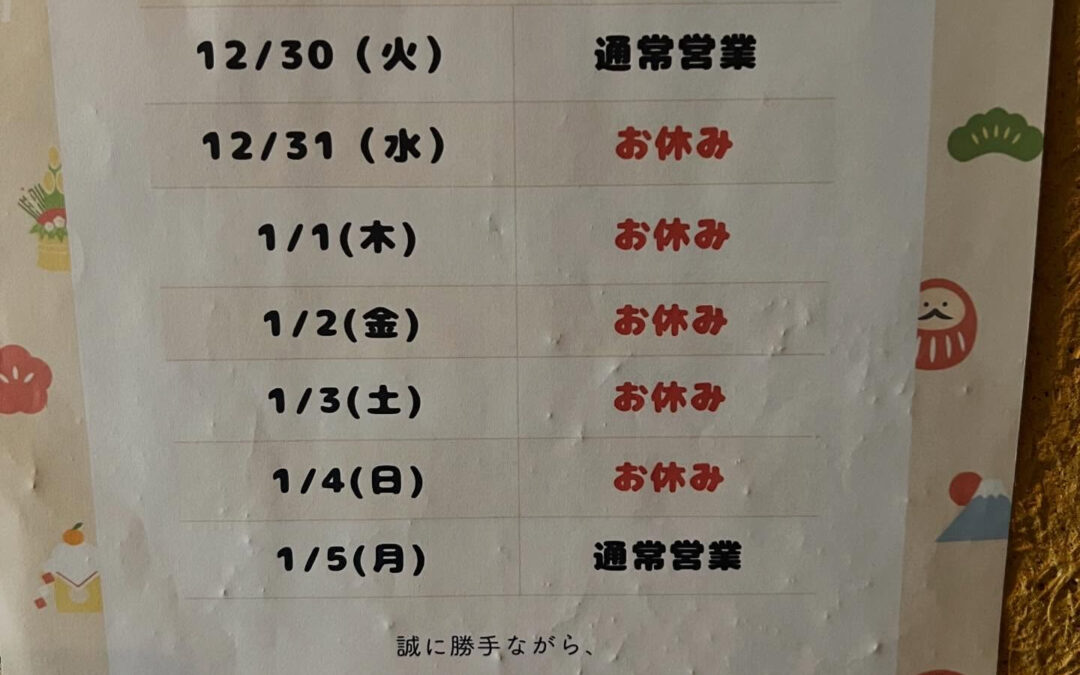 12/30（火） 通常営業
12/31（水） お休み
1/1(木) お休み
1/2(金) お休み
1/3(土) お休み
1/4(日) お休み
1/5(月) 通常営業
誠に勝手ながら、